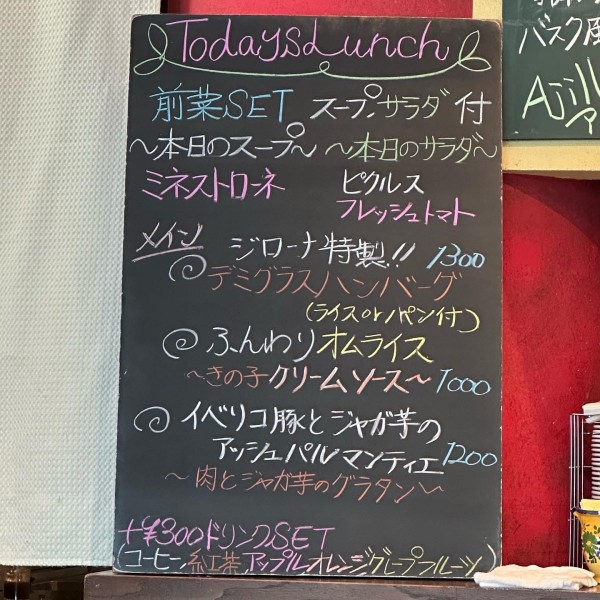 Todays Lunch
前菜SET スープ.サラダ付
〜本日のスープ〜 〜本日のサラダ〜
ミネストローネ ピクルス
フレッシュトマト
メイン ジローナ特製!! 1300
デミグラスハンバーグ
(ライスorパン付)
ふんわりオムライス
〜きの子クリームソース〜 1000
イベリコ豚とジャガ芋の
アッシュパルマンティエ 1200
〜肉とジャガ芋のグラタン〜
+¥300ドリンクSET
(コーヒー 紅茶 アップル オレンジ グレープフルーツ)
バスク風
Aji
ア